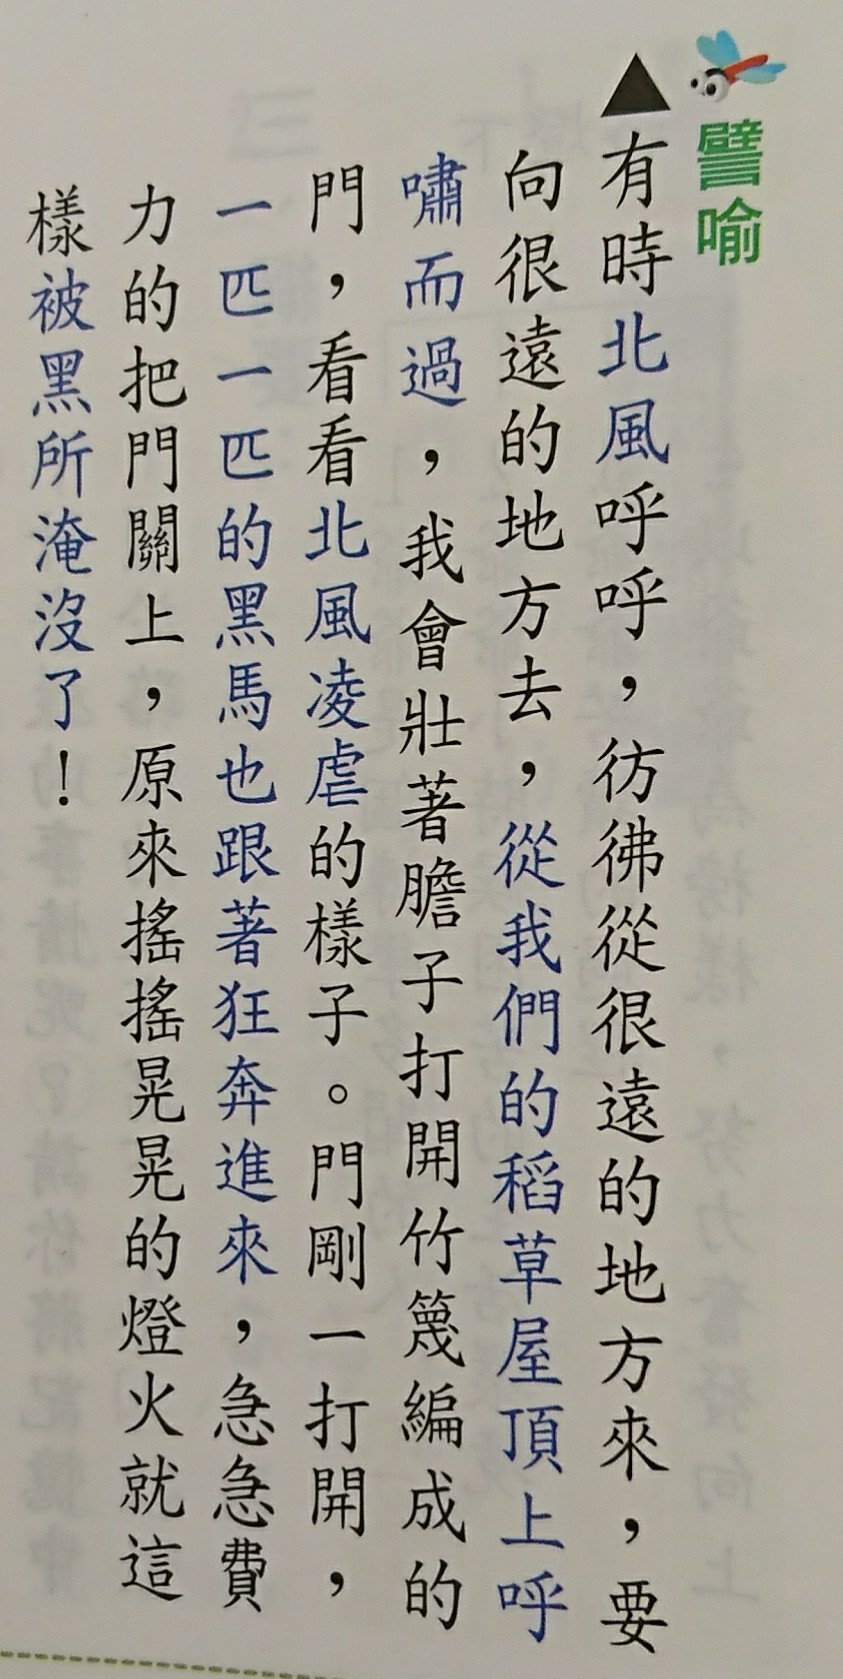 譬喻
▲有時北風呼呼，彷彿從很遠的地方來，要
向很遠的地方去，從我們的稻草屋頂上呼
嘯而過，我會壯著膽子打開竹篾編成的
門，看看北風凌虐的樣子。門剛一打開，
一匹一匹的黑馬也跟著狂奔進來，急急費
力的把門關上，原來搖搖晃晃的燈火就這
樣被黑所淹沒了！